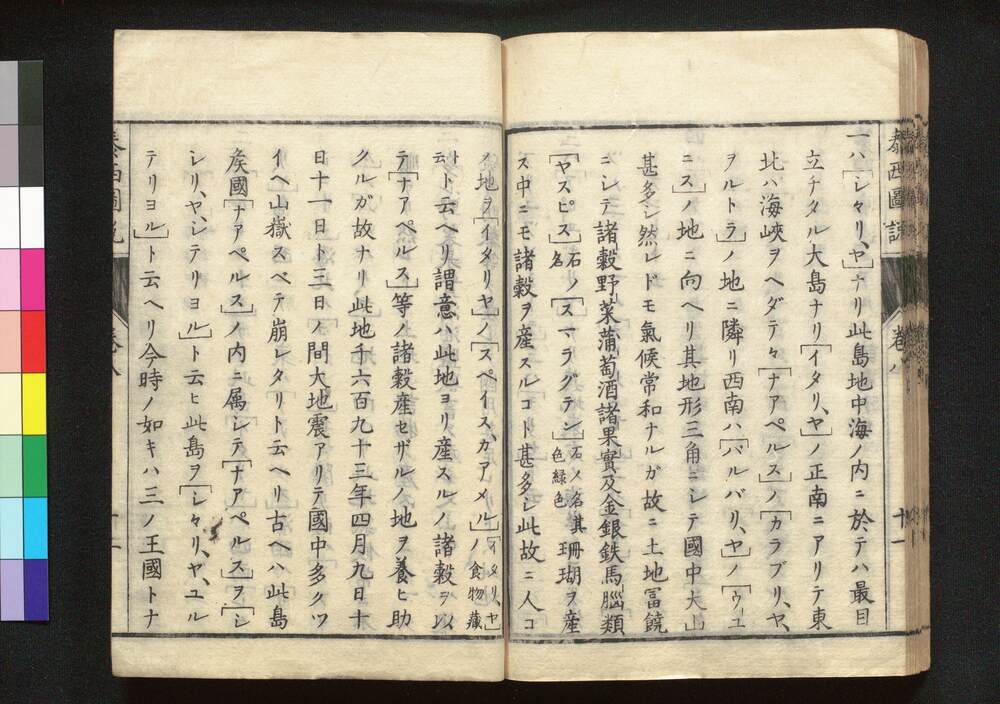 泰西圖説
卷八
十一
一ハ「シヽリ、ヤ」ナリ此島地中海ノ内ニ於テハ最目
立チタル大島ナリ「イタリ、ヤ」ノ正南ニアリテ東
北ハ海峽ヲヘダテヽ「ナアペルス」ノ「カラブリ、ヤ、
ヲルトラ」ノ地ニ隣リ西南ハ「バルバリ、ヤ」ノ「ウュ
ニス」ノ地ニ向ヘリ其地形三角ニシテ國中大山
甚多シ然レドモ氣候常和ナルガ故ニ土地冨饒
ニシテ諸穀野菜蒲萄酒諸果實及金銀鉄馬腦類
「ヤスピス」石ノ名「スマラグテン」石ノ名其色緑色珊瑚ヲ産
ス中ニモ諸穀ヲ産スルコト甚多シ此故ニ人コ
ノ地ヲ「イタリヤ」ノ「スペイス、カアメル」「イタリ、ヤ」ノ食物藏
ト云ヘリ謂意ハ此地ヨリ産スルノ諸穀ヲ以
テ「ナアペルス」等ノ諸穀産セザルノ地ヲ養ヒ助
クルガ故ナリ此地千六百九十三年四月九日十
日十一日ト三日ノ間大地震アリテ國中多クツ
イヘ山嶽スベテ崩レタリト云ヘリ古ヘハ此島
矦國「ナアペルス」ノ内ニ属シテ「ナアペルス」ヲ「シ
シリ、ヤ、シテリヨル」ト云ヒ此島ヲ「シヽリ、ヤ、ユル
テリヨル」ト云ヘリ今時ノ如キハ三ノ王國トナ
泰西圖説
卷八